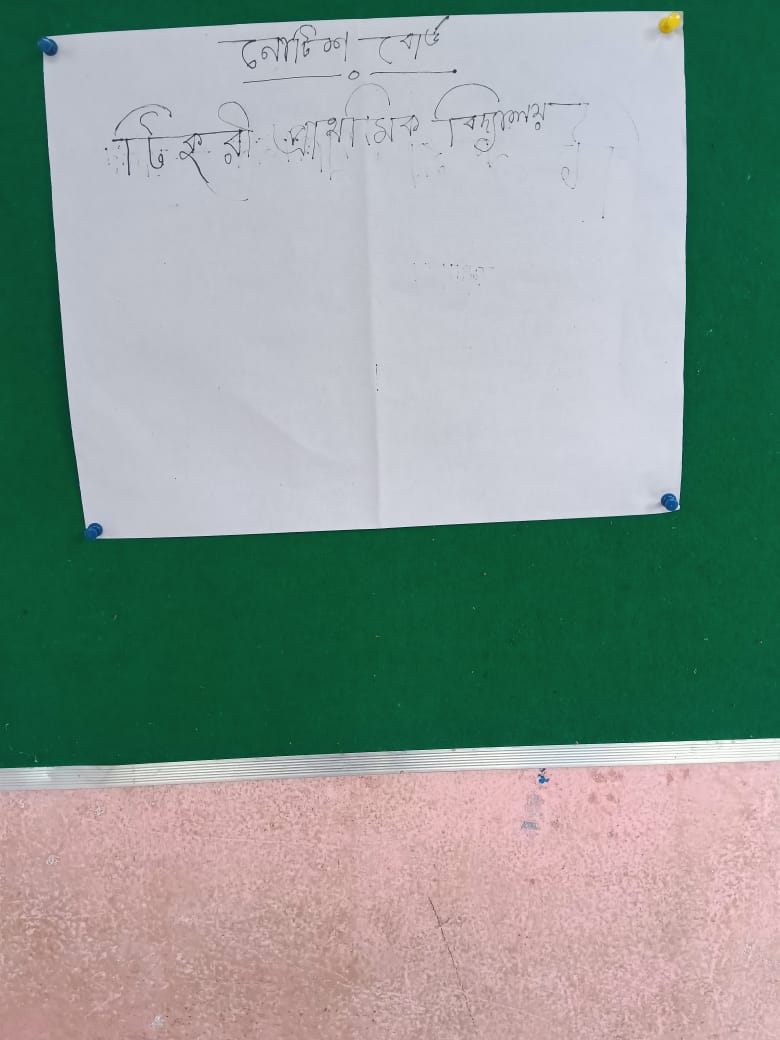 নোটিশ বোর্ড
টিকুরী প্রাথমিক বিদ্যালয়